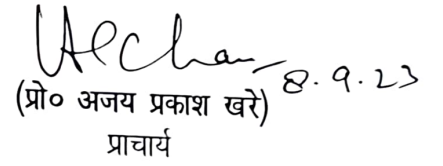 8.9.23
(प्रो० अजय प्रकाश खरे)
प्राचार्य